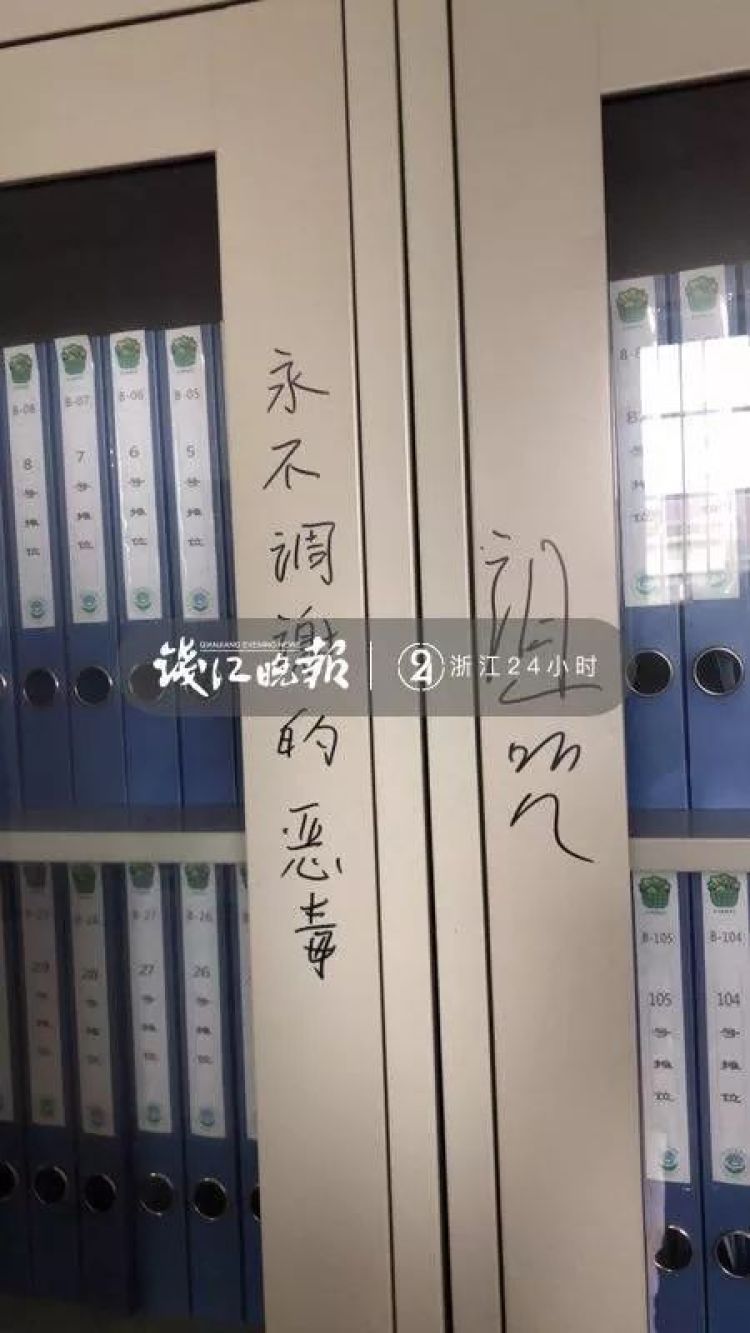 永不调谢的恶毒
诅咒
钱江晚报
QIANJIANG EVENING NEWS
24 浙江24小时
B-08
8号摊位
B-07
7号摊位
B-06
6号摊位
B-05
5号摊位
29号摊位
B-28
28号摊位
B-27
27号摊位
B-26
26号摊位
B-105
105号摊位
B-104
104号摊位